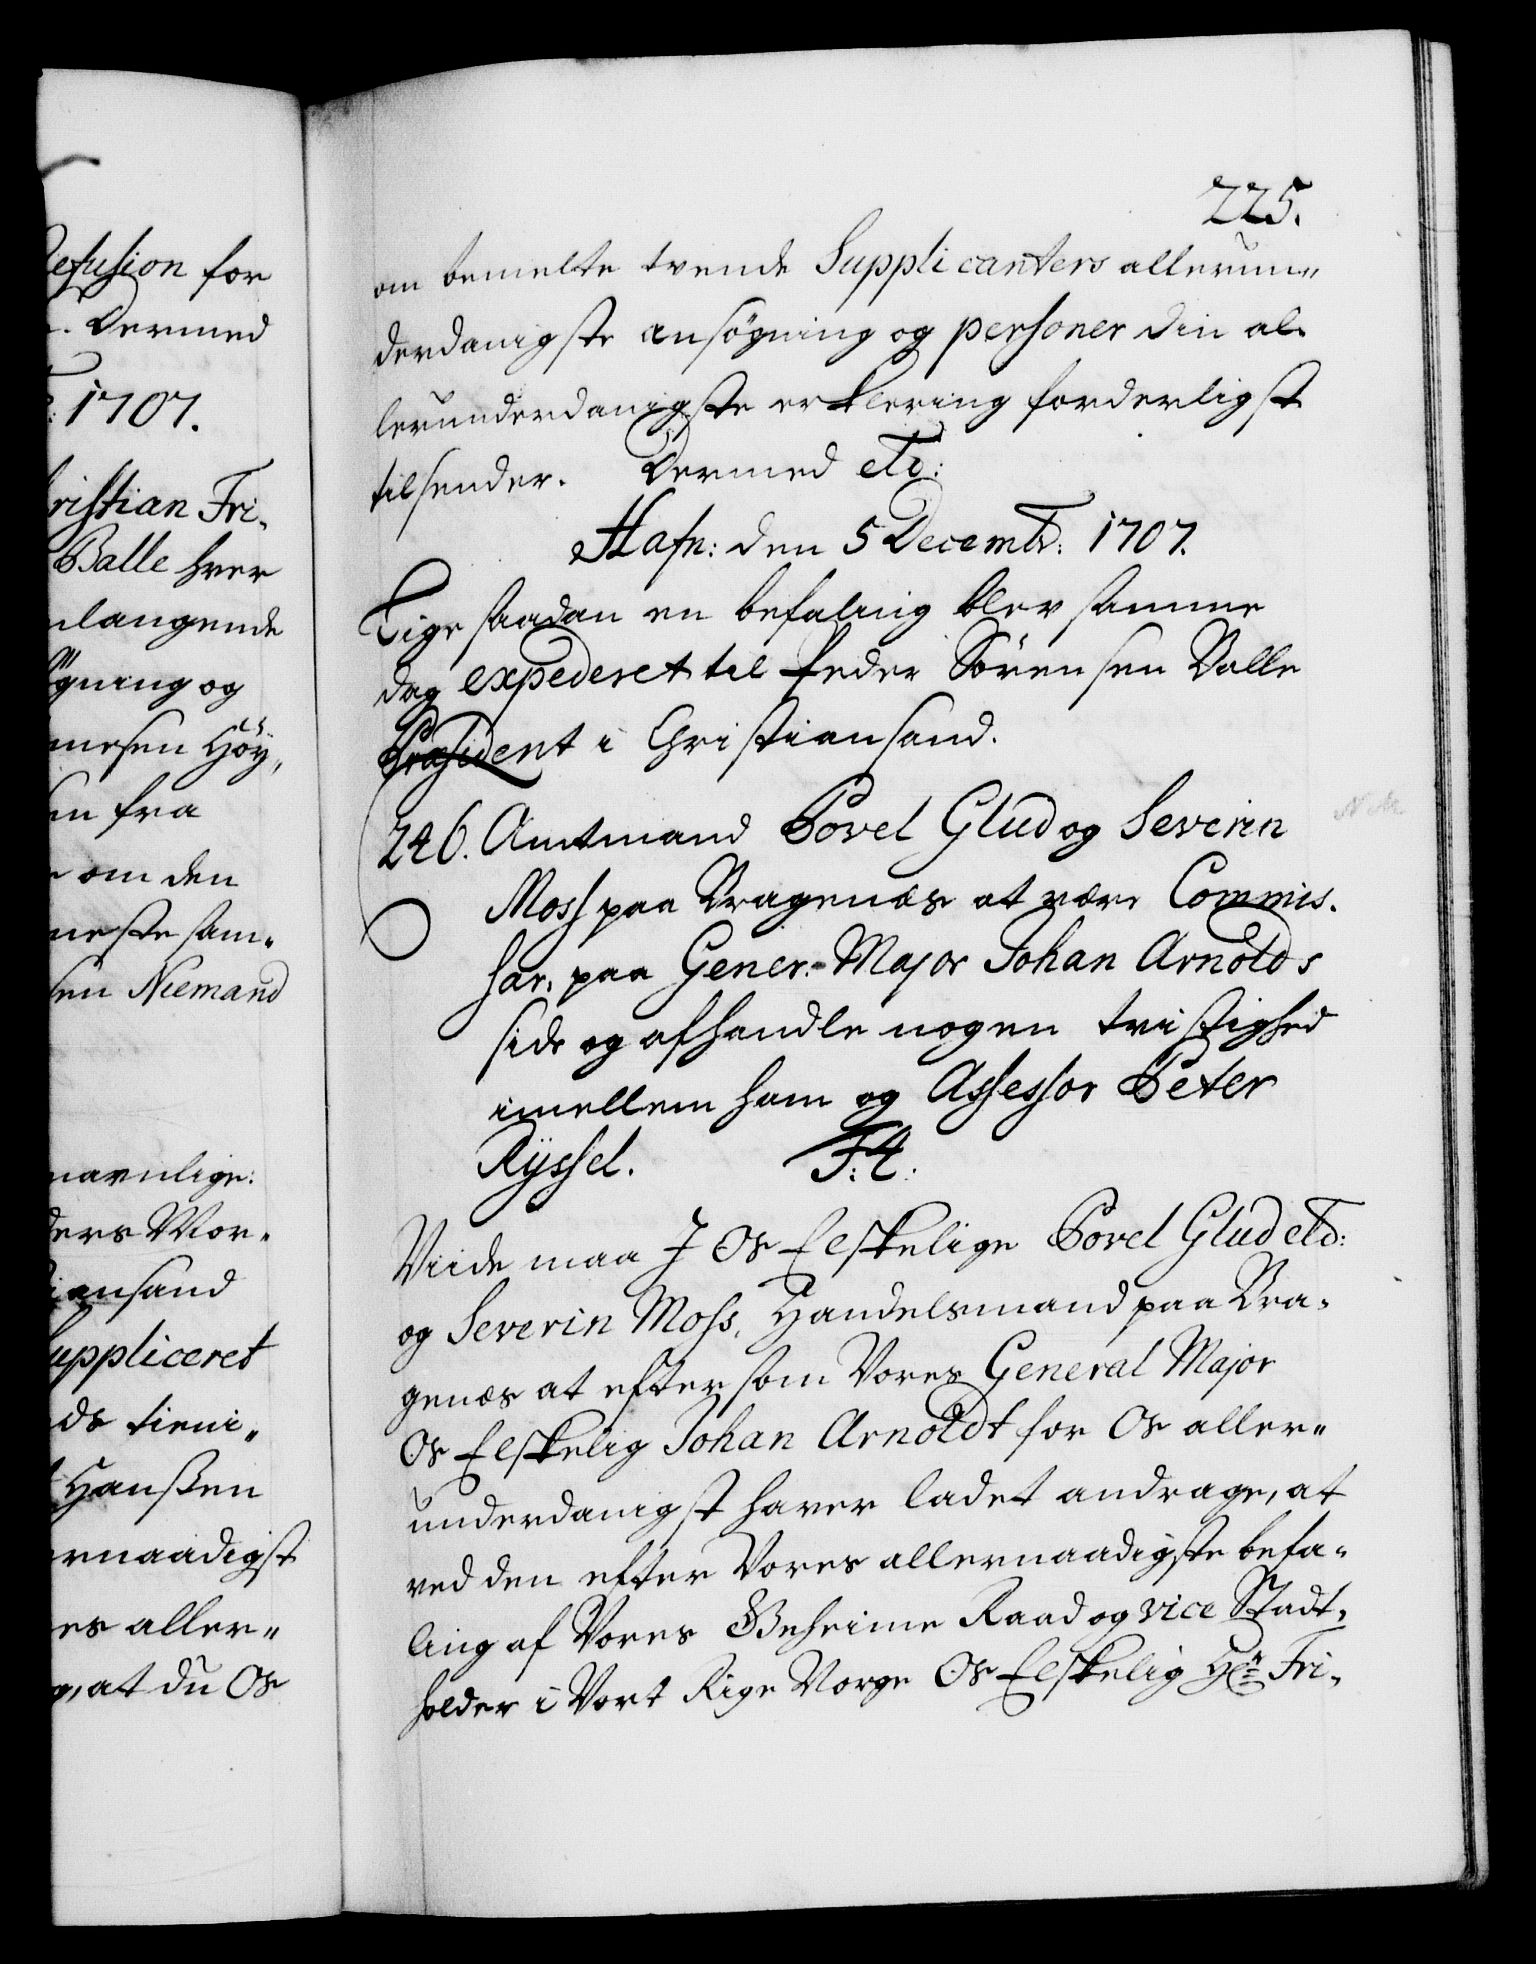 efusion for
Dermed
: 1707.
ristian Fri-
Balle hver
langende
gning og
mesen Höy,
en fra
om den
neste sam-
sen Niemand
navnlige:
ders Mor-
iansand
uppliceret
ds tieni-
Hanßen
rnaadigst
es aller-
, at du Os
225.
om bemelte tvende Supplicanters allerun-
derdanigste ansøgning og personer din al-
lerunderdanigste erklering forderligst
tilsender. Dermed etc:
Hafn: den 5 Decembr: 1707.
Lige saadan en befaling blev samme
dag expederet til Peder Sörensen Balle
Præsident i Christiansand.
246. Amtmand Povel Glud og Severin
Moss paa Bragenæs at være Commis-
sar. paa Gener.-Major Johan Arnolds
side og afhandle nogen tvistighed
imellem ham og Assessor Peter
Ryssel. F:4.
Viide maa I Os Elskelige Povel Glud etc:
og Severin Moss, Handelsmand paa Bra-
genæs at eftersom Vores General Major
Os Elskelig Johan Arnoldt for Os aller-
underdanigst haver ladet andrage, at
ved den efter Vores allernaadigste befa-
ling af Vores Geheime Raad og vice Stadt-
holder i Vort Rige Norge Os Elskelig Hr Fri-